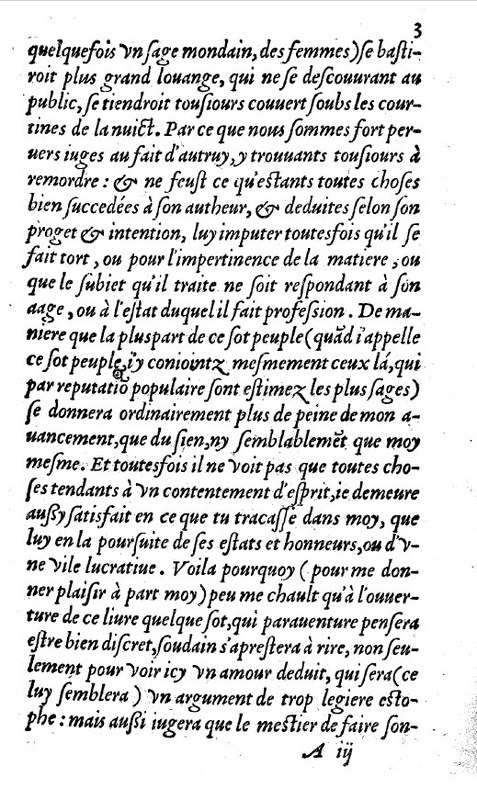 3
quelquefois vn ſage mondain, des femmes) ſe baſti-
roit plus grand louange, qui ne ſe deſcouurant au
public, ſe tiendroit touſiours couuert ſoubs les cour-
tines de la nuict. Par ce que nous ſommes fort per-
uers iuges au fait d'autruy, y trouuants touſiours à
remordre : & ne feuſt ce qu'eſtants toutes choſes
bien ſuccedées à ſon autheur, & deduites ſelon ſon
proget & intention, luy imputer toutesfois qu'il ſe
fait tort, ou pour l'impertinence de la matiere, ou
que le ſubiet qu'il traite ne ſoit reſpondant à ſon
aage, ou à l'eſtat duquel il fait profeſſion. De ma-
niere que la pluspart de ce ſot peuple (quãd i'appelle
ce ſot peuple, i'y coniointz meſmement ceux lá, qui
par reputatiõ populaire ſont eſtimez les plus ſages)
ſe donnera ordinairement plus de peine de mon a-
uancement, que du ſien, ny ſemblablemẽt que moy
meſme. Et toutesfois il ne voit pas que toutes cho-
ſes tendants à vn contentement d'eſprit, ie demeure
auſſy ſatisfait en ce que tu tracaſſe dans moy, que
luy en la pourſuite de ſes eſtats et honneurs, ou d'v-
ne vile lucratiue. Voila pourquoy (pour me don-
ner plaiſir à part moy) peu me chault qu'à l'ouuer-
ture de ce liure quelque ſot, qui parauenture penſera
eſtre bien diſcret, ſoudain s'apreſtera à rire, non ſeu-
lement pour voir icy vn amour deduit, qui ſera (ce
luy ſemblera) vn argument de trop legiere eſto-
phe : mais auſſi iugera que le meſtier de faire ſon-
A iij